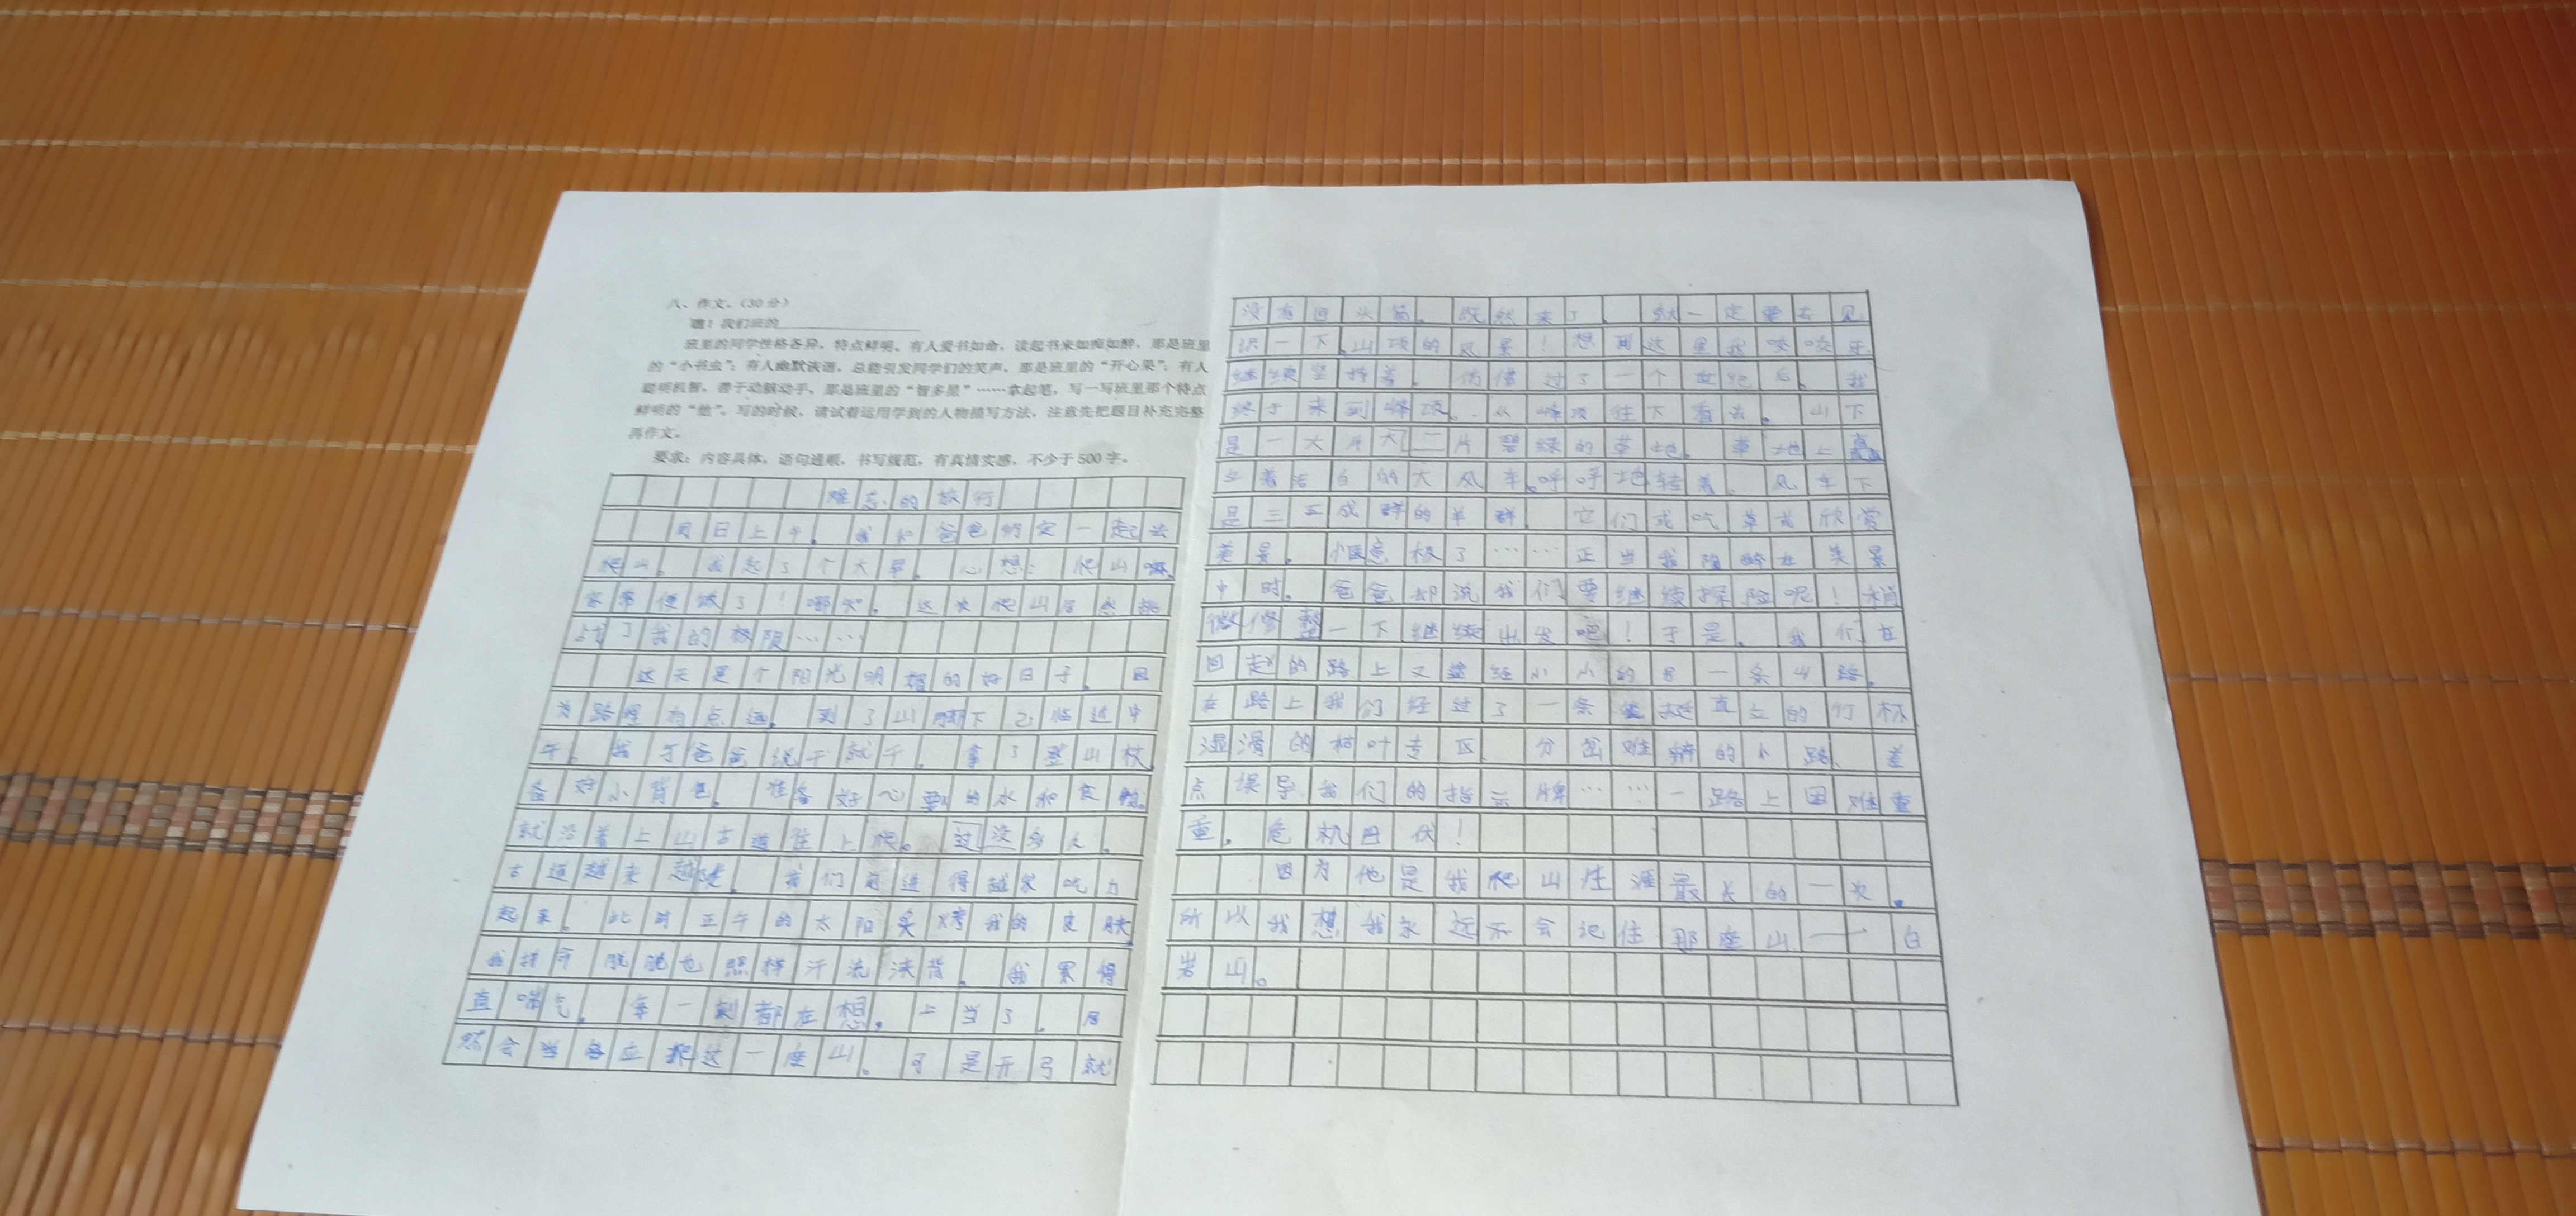 八、作文。（30分）
瞧！我们班的
班里的同学性格各异，特点鲜明。有人爱书如命，读起书来如痴如醉，那是班里
的“小书虫”；有人幽默诙谐，总能引发同学们的笑声，那是班里的“开心果”；有人
聪明机智，善于动脑动手，那是班里的“智多星”……拿起笔，写一写班里那个特点
鲜明的“他”。写的时候，请试着运用学到的人物描写方法，注意先把题目补充完整
再作文。
要求：内容具体，语句通顺，书写规范，有真情实感，不少于500字。
难忘的旅行
周日上午，我和爸爸约定一起去
爬山。我起了个大早，心想：爬山嘛，
家常便饭了！哪知，这次爬山居然挑
战了我的极限……
这天是个阳光明媚的好日子，因
为路程有点远，到了山脚下已临近中
午。我与爸爸说干就干，拿了登山杖，
备好小背包，准备好心要的水和食物。
就沿着上山古道往上爬。过没多久，
古道越来越陡，我们前进得越来吃力
起来。此时正午的太阳炙烤我的皮肤，
我 也照样汗流浃背，我累得
直喘气，每一刻都在想，上当了，居
然会 应 过一座山。可是开弓就
没有回头箭，既然来了，就一定要去见
识一下山顶的风景！想到这里我咬咬牙，
继续坚持着。仿偌过了一个世纪后，我
终于来到峰顶。从峰顶往下看去，山下
是一大片大二片碧绿的草地，草地上矗
立着洁白的大风车呼呼地转着，风车下
是三五成群的羊群，它们或吃草或欣赏
美景，惬意极了……正当我陶醉在美景
中时，爸爸却说我们要继续探险呢！稍
微修整一下继续出发吧！于是，我们在
回赵的路上又途经小小的另一条山路。
在路上我们经过了一条 挺直立的竹林
湿滑的树叶专区、分岔难辨的小路、差
点误导我们的指示牌……一路上困难重
重，危机四伏！
因为他是我爬山生涯最长的一次，
所以我想我永远不会记住那座山——白
岩山。